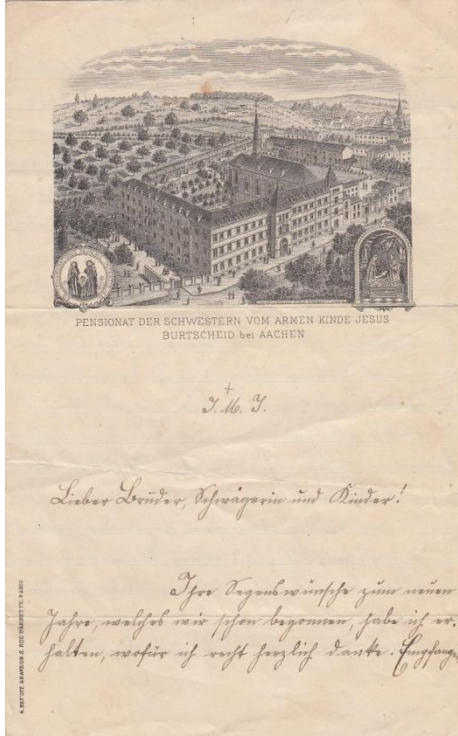 PENSIONAT DER SCHWESTERN VOM ARMEN KINDE JESUS
BURTSCHEID bei AACHEN
+
J. M. J.
Lieber Bruder, Schwägerin und Kinder!
Ihre Segenswünsche zum neuen
Jahre, welches wir schon begonnen, habe ich er-
halten, wofür ich recht herzlich danke. Empfangen
PARIS